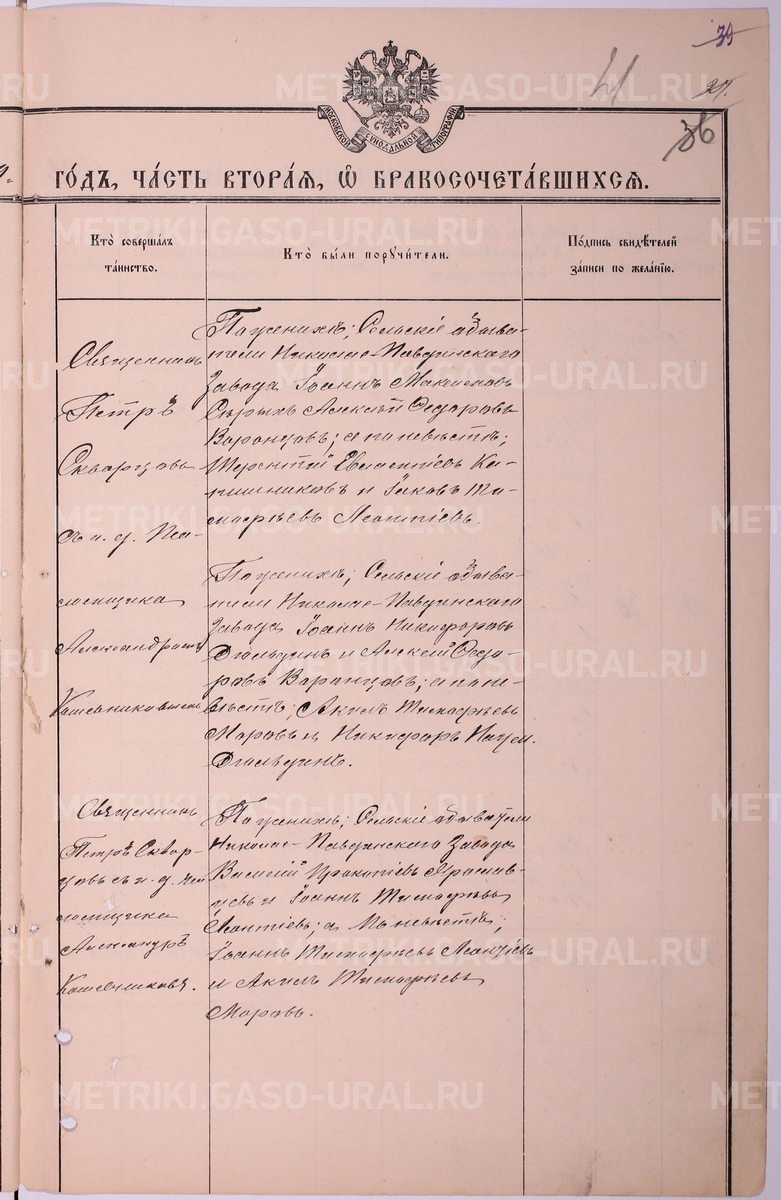 39
41
37.
36
МОСКОВСКОЙ СУНОДАЛЬНОЙ ТИПОГРАФІИ
го́дъ, ча́сть втора́я, ѽ бракосочета́вшихся.
Кто̀ соверша́лъ та́инство.
Кто̀ бы́ли поручи́тели.
По́дпись свидѣ́телей за́писи по жела́нію.
Священникъ
Петръ
Скварцовъ
съ и. д. Пса-
ломщика
Александромъ
Кашевниковымъ
По женихѣ; Сельскіе обыва-
тели Николае-Павдинскаго
Завода Іоаннъ
Сырыхъ Алексѣй Ѳедоровъ
Воронцовъ; а по невѣстѣ;
Терентій
и Іаковъ Ти-
мофѣевъ Леонтіевъ.
По женихѣ; Сельскіе обыва-
тели Николае-Павдинскаго
Завода Іоаннъ Никифоровъ
и Алексѣй Ѳедо-
ровъ Воронцовъ; а по не-
вѣстѣ; Акимъ Тимофѣевъ
Маровъ и Никифоръ Наум.
Священникъ
Петръ Сквар-
цовъ съ и. д. Пса
ломщика
Александръ
Кашевниковъ.
По женихѣ; Сельскіе обыватели
Николае-Павдинскаго Завода
Василій Прокопіевъ
и Іоаннъ Тимофѣевъ
Леонтіевъ; а по невѣстѣ;
Іоаннъ Тимофѣевъ Леонтіевъ
и Акимъ Тимофѣевъ
Маровъ.
METRIKI.GASO-URAL.RU